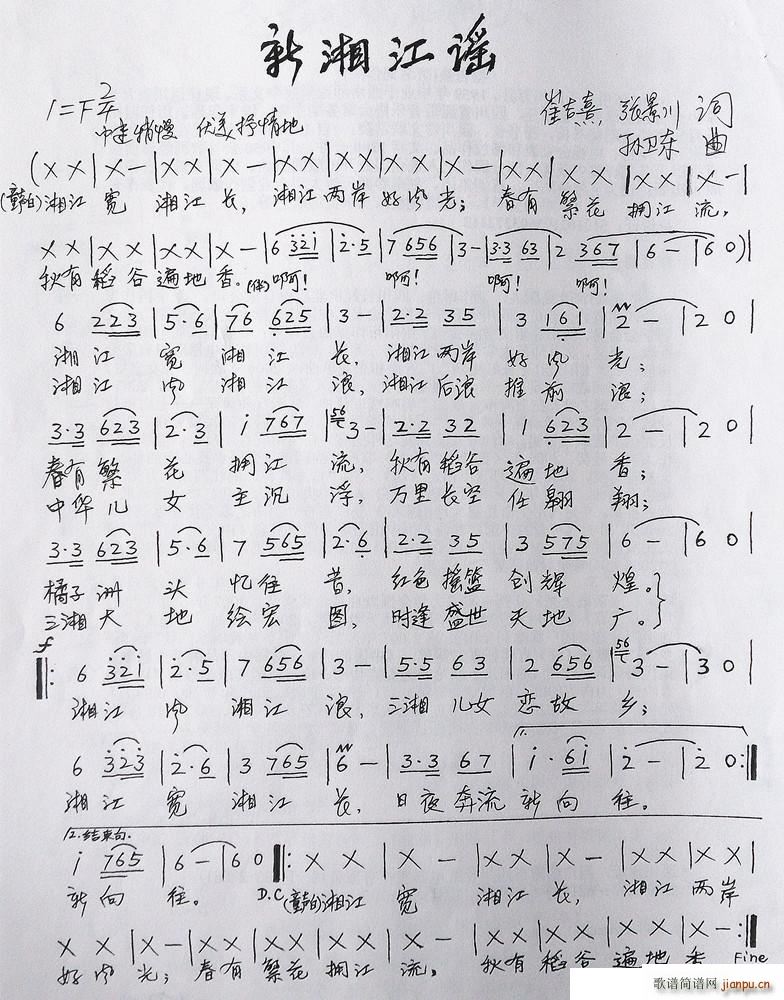 新湘江谣
1=F 2/4
中速稍慢 优美抒情地
崔吉熹 张景川 词
孙卫东 曲
(X X|X -|X X|X -|X X|X X|X X|X -|X X|X X|X X|X -|
(童白)湘江 宽 湘江 长, 湘江 两岸 好风 光; 春有 繁花 拥江 流,
X X|X X|X X|X -|6 321|2·5|7 656|3-|3·3 63|2 367|6-|60)|
秋有 稻谷 遍地 香。(伴)啊! 啊! 啊! 啊!
6 223|5·6|76 625|3-|2·2 35|3 161|2-|20|
湘 江 宽 湘 江 长, 湘江 两岸 好 风 光;
湘 江 风 湘 江 浪, 湘江 后浪 推 前 浪;
3·3 623|2·3|i 767|56 3-|2·2 32|1 623|2-|20|
春有 繁 花 拥 江 流, 秋有 稻谷 遍 地 香;
中华 儿 女 主 沉 浮, 万里 长空 任 翱 翔;
3·3 623|5·6|7 565|2·6|2·2 35|3 575|6-|60|
橘子 洲 头 忆 往 昔, 红色 摇篮 创 辉 煌。}
三湘 大 地 绘 宏 图, 时逢 盛世 天 地 广。}
f
‖: 6 321|2·5|7 656|3-|5·5 63|2 656|56 3-|30|
湘 江 风 湘 江 浪, 三湘 儿女 恋 故 乡;
6 323|2·6|3 765|6-|3·3 67|i·6i|2-|20:‖
湘 江 宽 湘 江 长, 日夜 奔流 新 向 往。
2.结束句.
i 765|6-|60‖: X X|X -|X X|X -|X X|X X|
新 向 往。 D.C (童白)湘江 宽 湘江 长, 湘江 两岸
X X|X -|X X|X X|X X|X -|X X|X X|X X|X -:‖
好风 光; 春有 繁花 拥江 流, 秋有 稻谷 遍地 香 Fine
歌谱简谱网
jianpu.cn